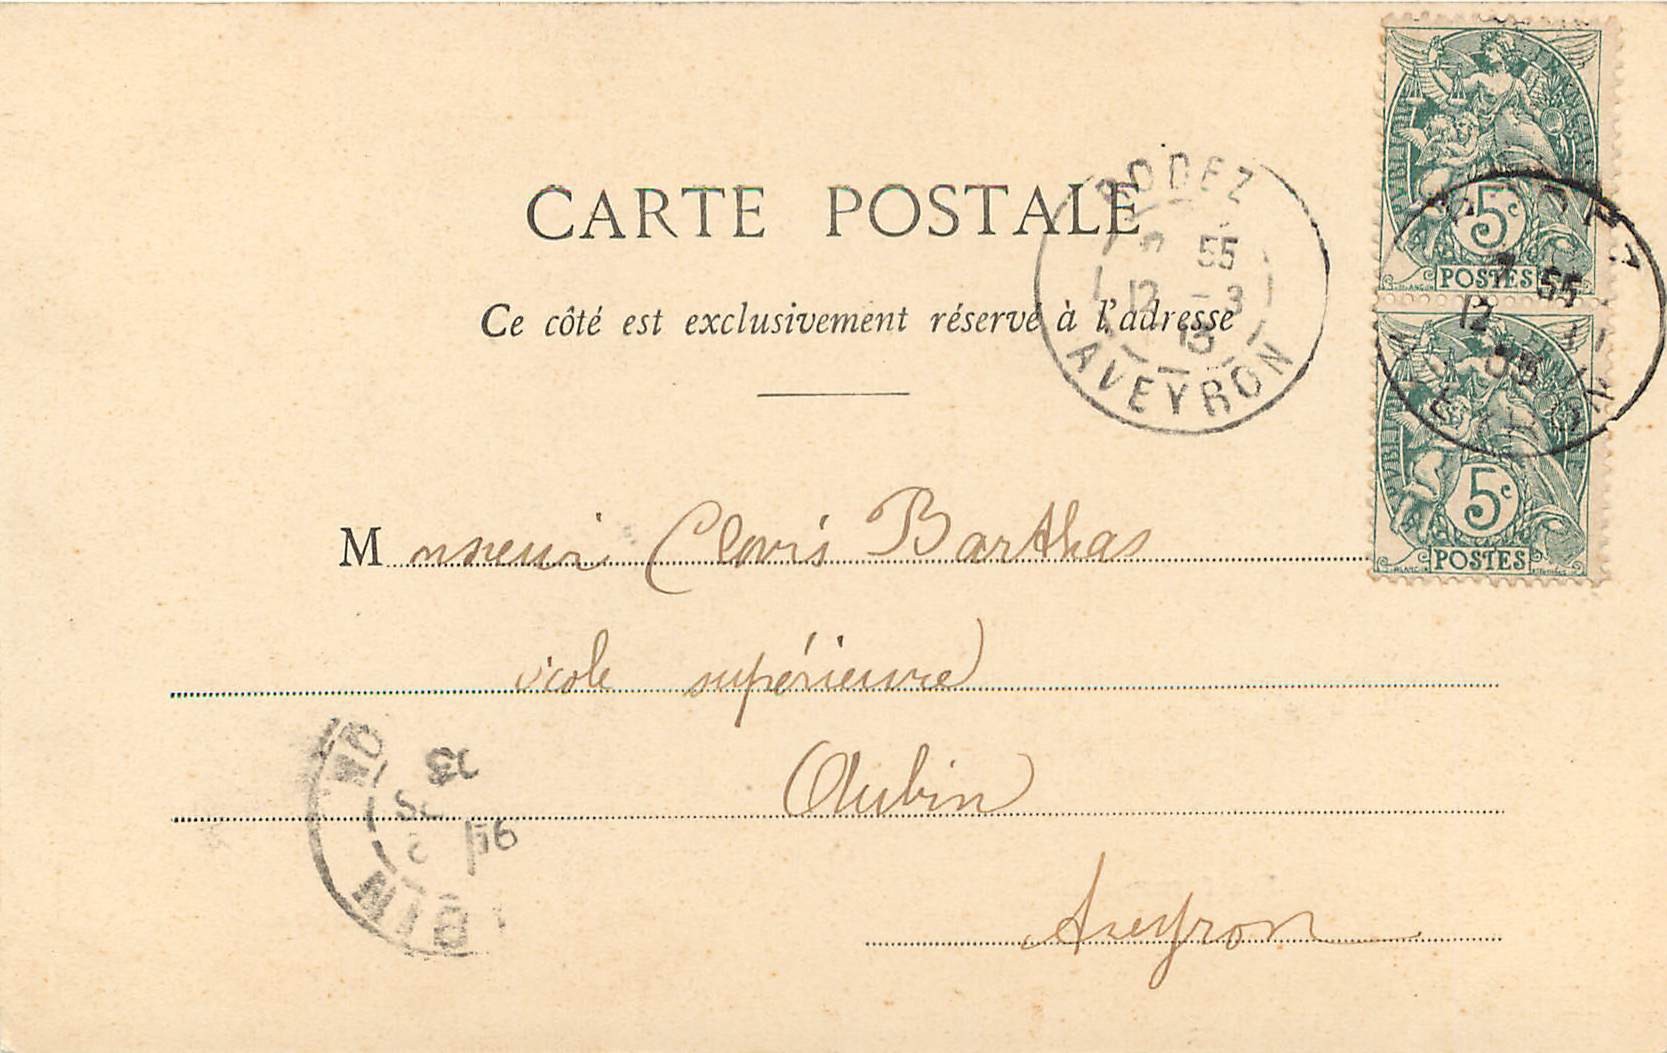 CARTE POSTALE
Ce côté est exclusivement réservé à l'adresse
RODEZ
55
12 - 3
AVEYRON
5c
POSTES
7 55
12
5c
POSTES
Monsieur Clovis Barthas
école supérieure
Aubin
Aveyron
BIN